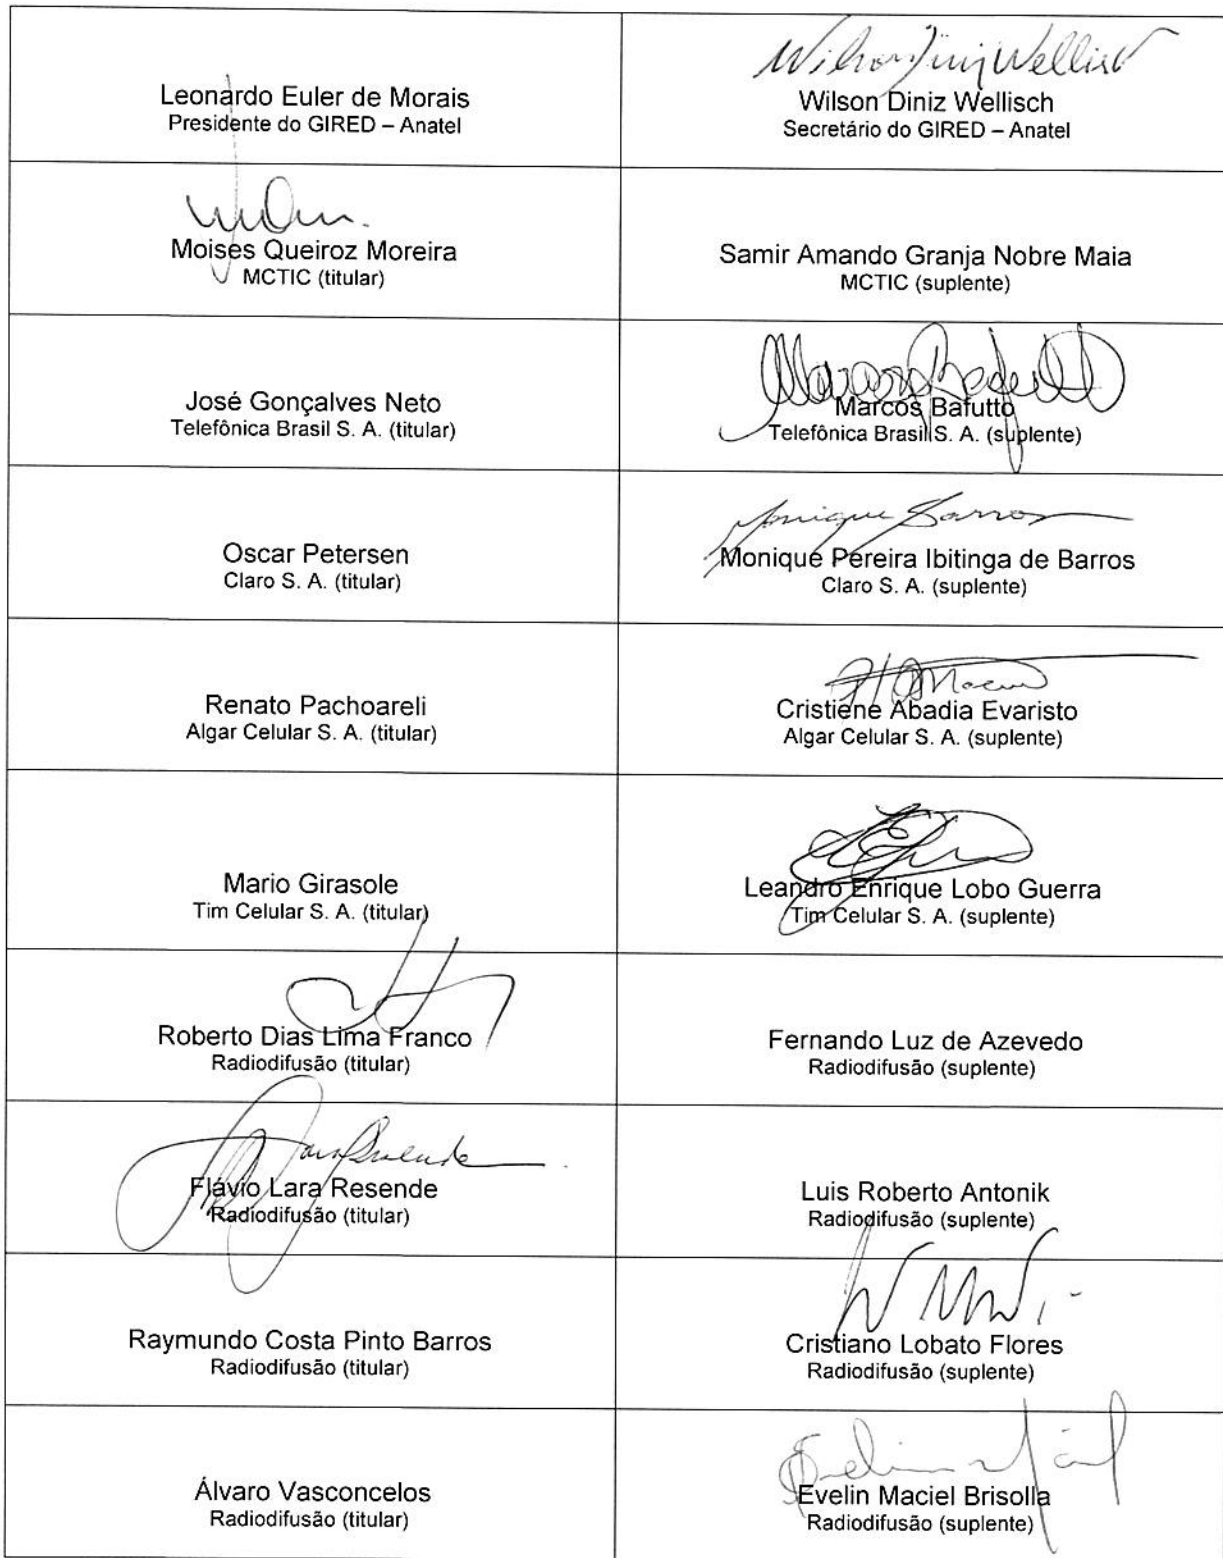 Wilson Diniz Wellisch
Leonardo Euler de Morais
Presidente do GIRED – Anatel
Wilson Diniz Wellisch
Secretário do GIRED – Anatel
Moises Queiroz Moreira
MCTIC (titular)
Samir Amando Granja Nobre Maia
MCTIC (suplente)
José Gonçalves Neto
Telefônica Brasil S. A. (titular)
Marcos Bafutto
Telefônica Brasil S. A. (suplente)
Oscar Petersen
Claro S. A. (titular)
Monique Barros
Monique Pereira Ibitinga de Barros
Claro S. A. (suplente)
Renato Pachoareli
Algar Celular S. A. (titular)
Cristiene Abadia Evaristo
Algar Celular S. A. (suplente)
Mario Girasole
Tim Celular S. A. (titular)
Leandro Enrique Lobo Guerra
Tim Celular S. A. (suplente)
Roberto Dias Lima Franco
Radiodifusão (titular)
Fernando Luz de Azevedo
Radiodifusão (suplente)
Flávio Lara Resende
Radiodifusão (titular)
Luis Roberto Antonik
Radiodifusão (suplente)
Raymundo Costa Pinto Barros
Radiodifusão (titular)
Cristiano Lobato Flores
Radiodifusão (suplente)
Álvaro Vasconcelos
Radiodifusão (titular)
Evelin Maciel Brisolla
Radiodifusão (suplente)